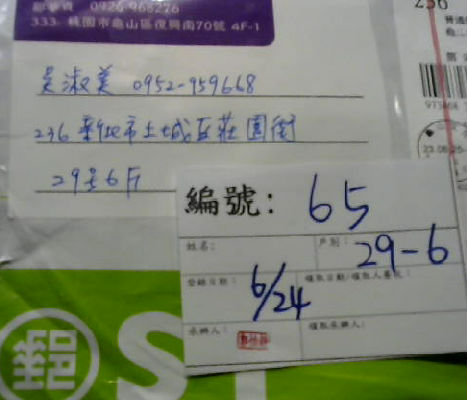 鄒事貿 0926-968226
333 桃園市龜山區復興南70號 4F-1
236
吳淑美 0952-959668
236 新北市土城區莊園街
29号6F
編號: 65
姓名:
戶別: 29-6
登錄日期: 6/24
領取日期/領取人簽收:
承辦人:
領取承辦人:
郵 ST